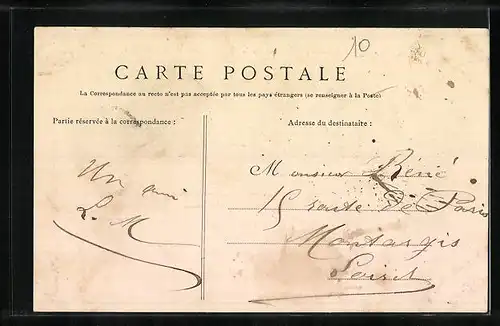 10
CARTE POSTALE
La Correspondance au recto n'est pas acceptée par tous les pays étrangers (se renseigner à la Poste)
Partie réservée à la correspondance :
Adresse du destinataire :
Un ami
L. M
Monsieur René
15 route de Paris
Montargis
Loiret